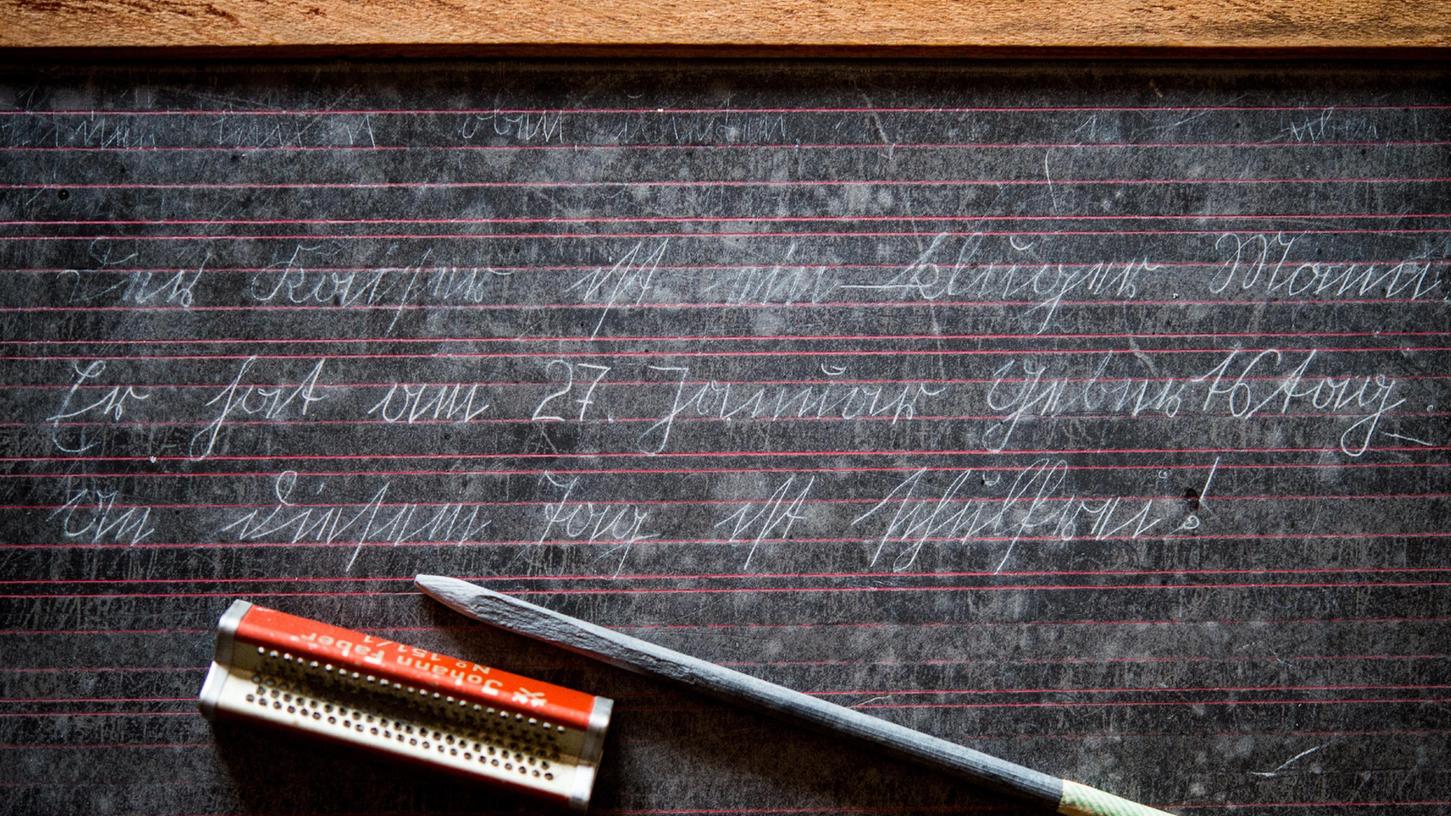 Der Kaiser ist ein kluger Mann
Er hat am 27. Januar Geburtstag
An diesem Tag ist schulfrei!
Johann Faber
No 151/1